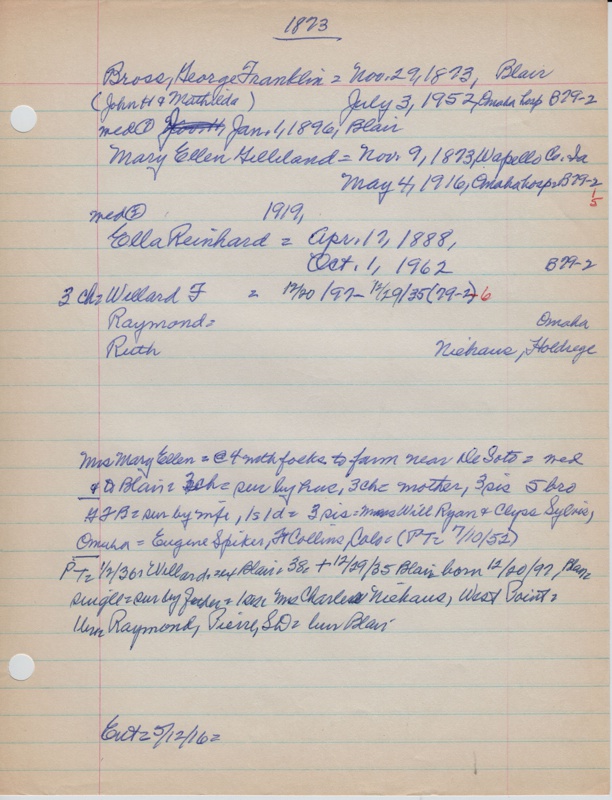 1873
Bross, George Franklin = Nov. 29, 1873, Blair
(John H & Mathilda) July 3, 1952, Omaha hosp B79-2
med ① Jan. 1, 1896, Blair
Mary Ellen Gilliland = Nov. 9, 1873, Wapello Co. Ia
May 4, 1916, Omaha hosp = B79-2
15
med ② 1919,
Ella Reinhard = Apr. 17, 1888,
Oct. 1, 1962 B79-2
3 ch = Willard F = 12/20/97 - 12/29/35 (79-2) 6
Raymond = Omaha
Ruth Niehaus, Holdrege
Mrs Mary Ellen = @ 4 with folks to farm near De Soto = med
Blair = 3ch = sur by hus, 3ch = mother, 3 sis 5 bro
GFB = sur by wife, 1s 1d = 3 sis = Mmes Will Ryan & Sylvis,
Omaha = Eugene Spiker, Ft Collins, Colo = (PT = 7/10/52)
PT = 1/2/36: Willard = ex Blair = 38 + 12/29/35 Blair born 12/20/97, Blair
single = sur by = 1 sis Mrs Charles Niehaus, West Point =
Raymond, Pierre, SD = bur Blair
Ent = 5/12/16 =